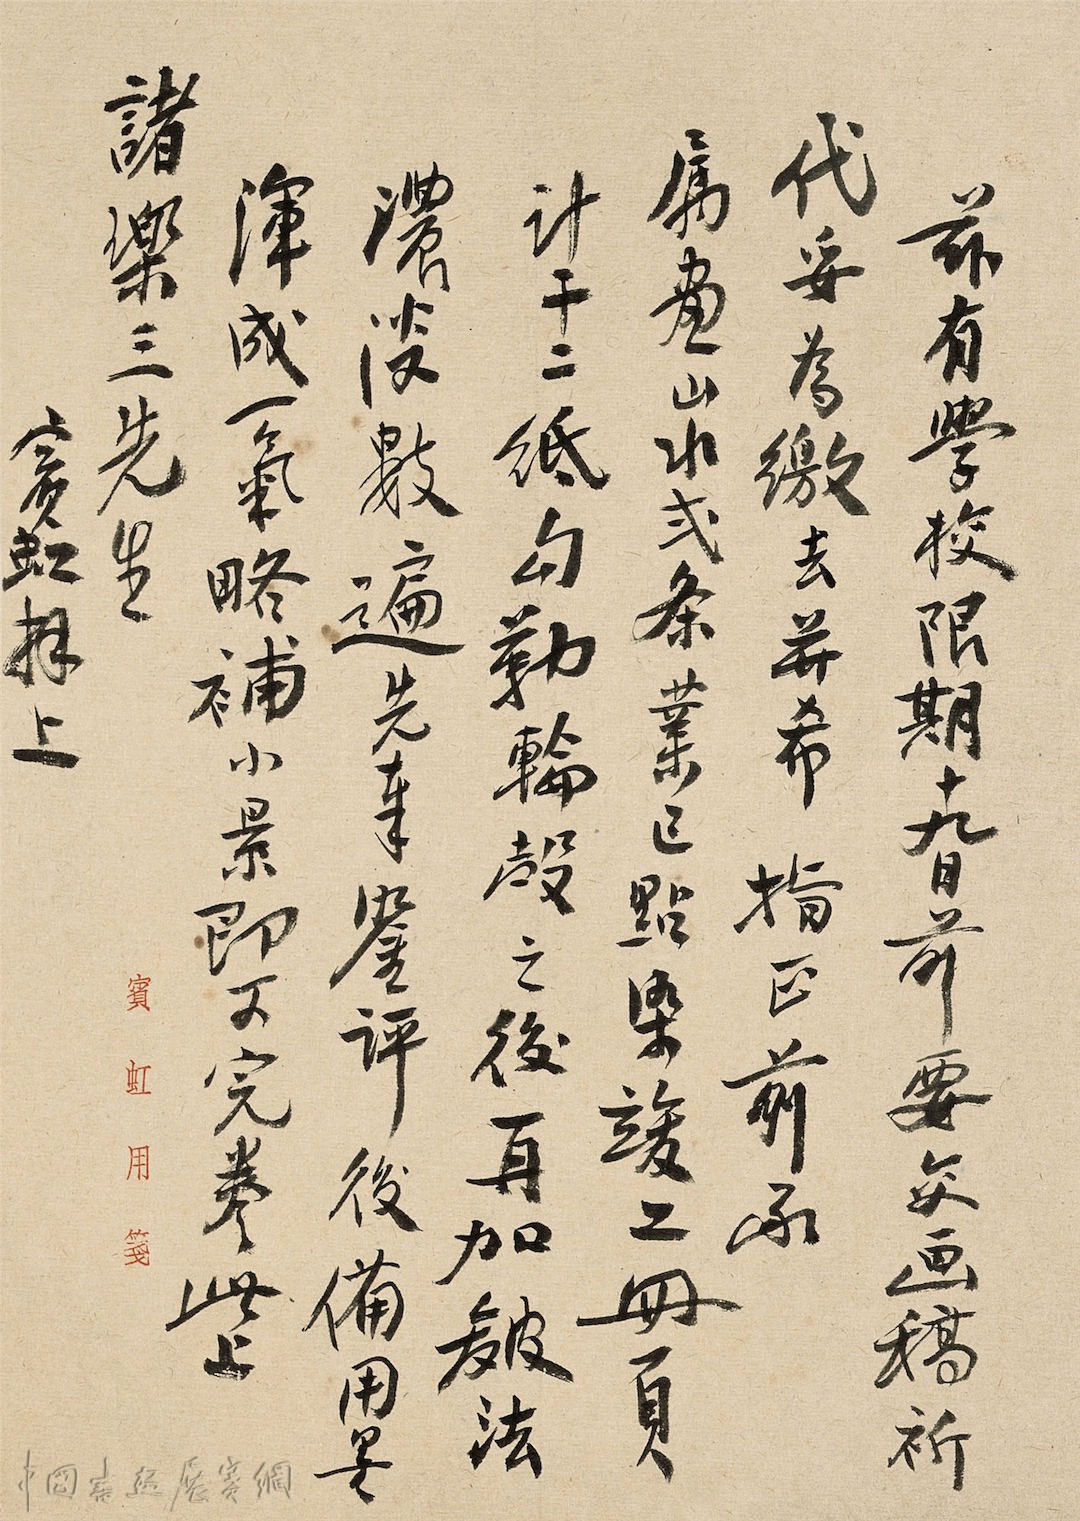 茲有學校限期十九日前要交画稿祈
代妥為繳去並希 指正前承
属畫山水弍条業已點染竣工冊頁
計十二紙勾勒輪殻之後再加皴法
濃淡數遍先奉鑒評後備用墨
渾成一氣略補小景即可完卷此上
諸樂三先生
賓虹拜上
賓虹用箋
中國書法展賽網